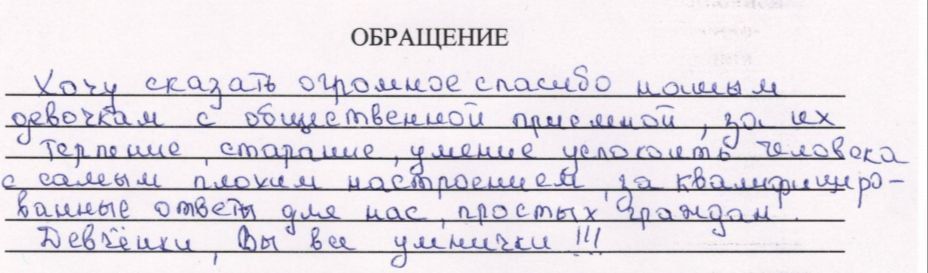 ОБРАЩЕНИЕ
Хочу сказать огромное спасибо нашим
девочкам с общественной приемной, за их
терпение, старание, умение успокоить человека
с самым плохим настроением, за квалифициро-
ванные ответы для нас, простых граждан.
Девчёнки, Вы все умнички!!!